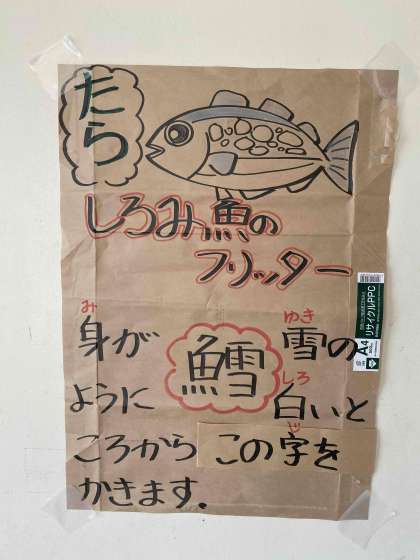 たら
しろみ魚の
フリッター
み
身が
鱈
ゆき
雪の
ように
しろ
白いと
ころから
じ
この字を
かきます.
リサイクルPPC
A4